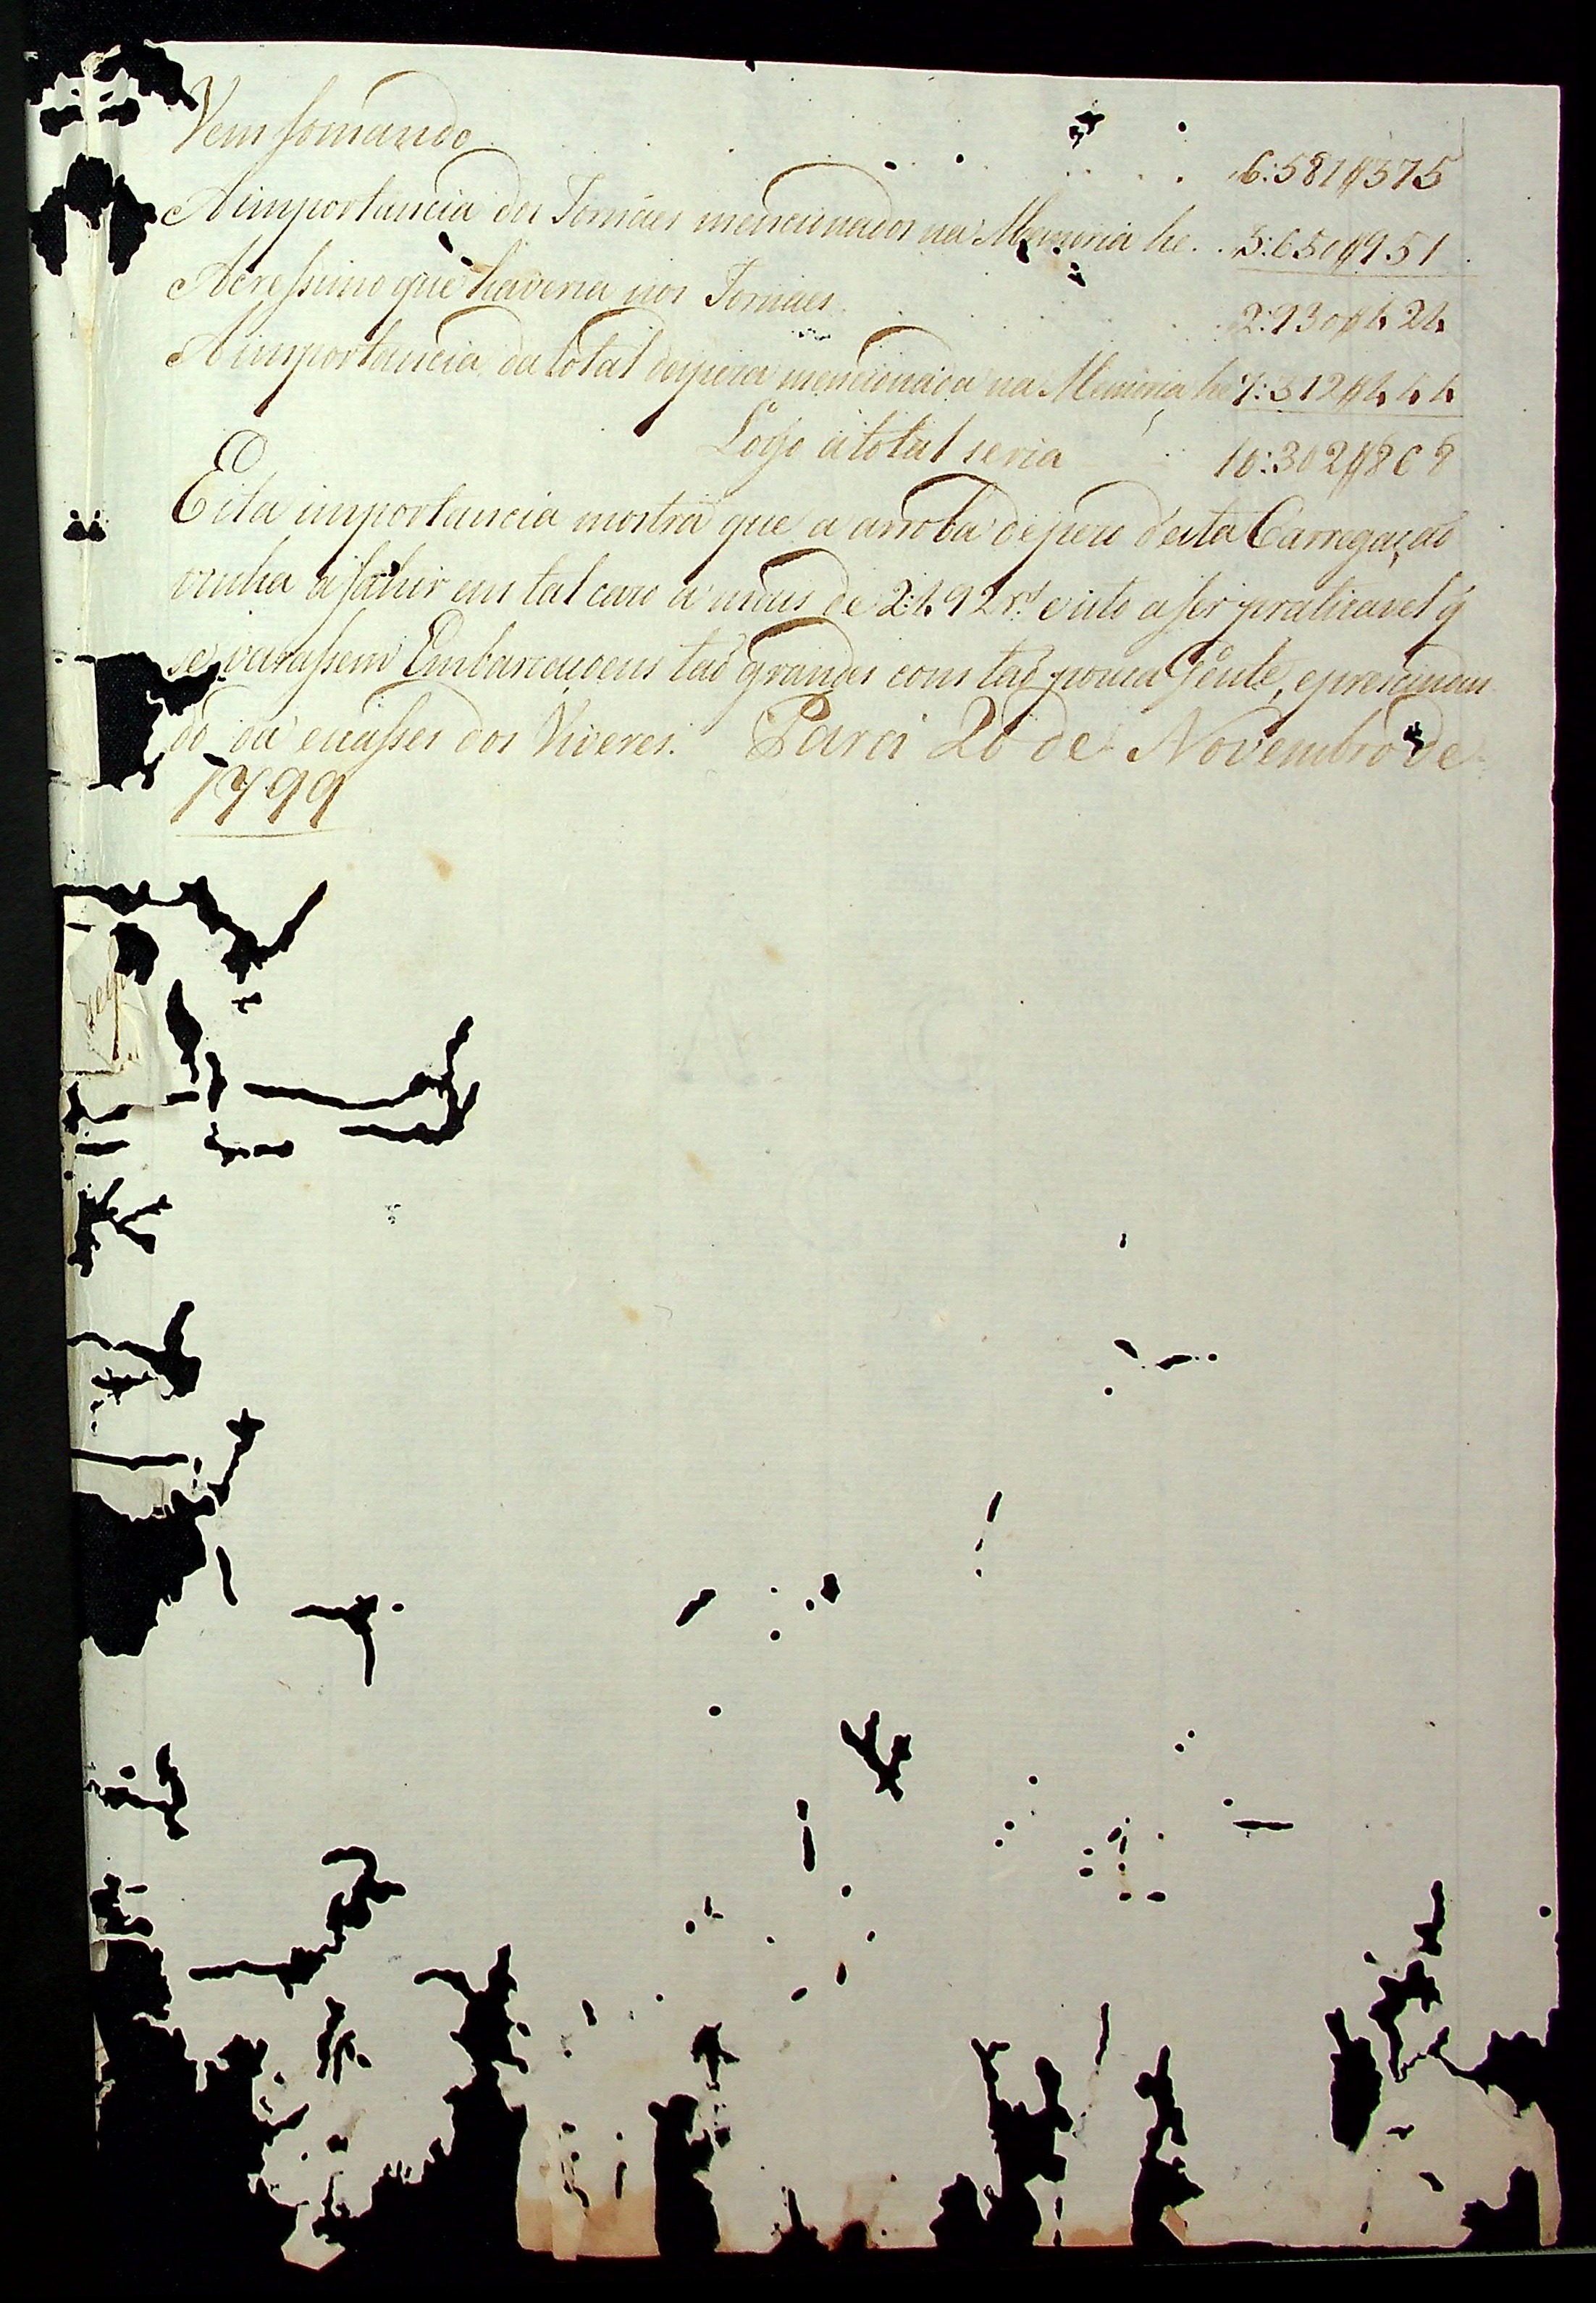 Vem somando . . . . . . . 6:581$375
A importancia dos Jornaes mencionados na Memoria he . . 3:650$951
Acressimo que haveria nos Jornaes . . . . 2:930$424
A importancia da total despeza mencionada na Memoria he 7:372$444
Logo a total seria . . 10:302$868
Esta importancia mostra que a arroba de pezo d'esta Carregação
vinha a sahir em tal cazo a mais de 2:492 rs. e isto a ser praticavel q̃
se varassem Embarcaçoens taõ grandes com taõ pouca Gente, e prescindin
do da escasses dos Viveres. Pará 20 de Novembro de
1799